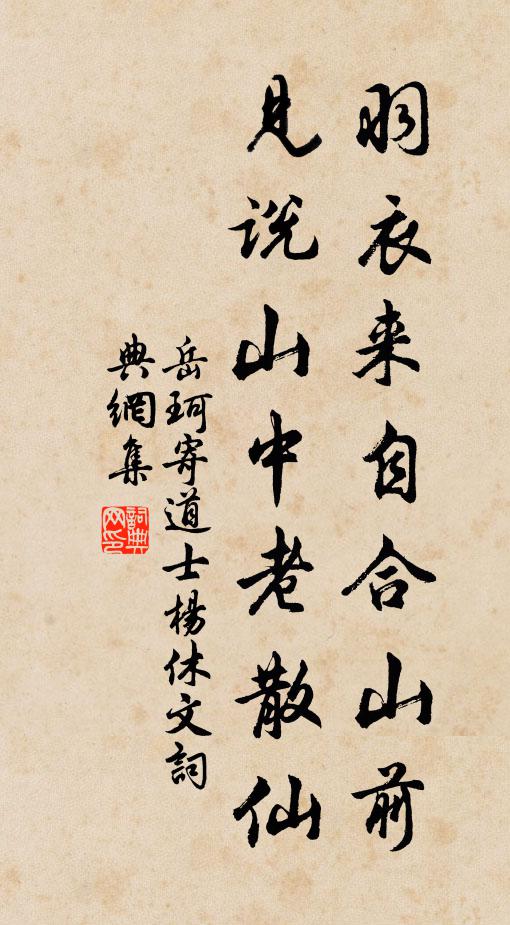 羽衣来自合山前
見説山中老散仙
岳珂寄道士楊休文詞
典網集
詞典
网印